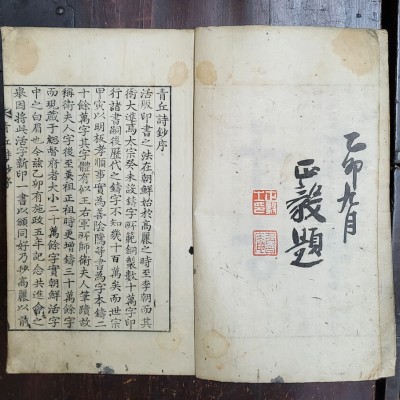 乙卯九月
正毅題
青丘詩鈔序
活版印書之法在朝鮮始於高麗之時至李朝而其
術大進焉太宗癸未設鑄字所範銅製數十萬字印
行諸書嗣後歷代之鑄字不知幾十百萬矣而世宗
甲寅以明板孝順事實為善陰隲等書為字本鑄二
十餘萬字其字體有似王右軍所師衛夫人筆蹟故
稱衛夫人字後至英祖正祖時更增鑄三十萬餘字
而現藏于總督府者大小二十萬餘字實朝鮮活字
中之白眉也今茲乙卯有施政五年記念共進會之
舉因將此活字新印一書以頒同好乃抄高麗以前
青丘詩鈔序